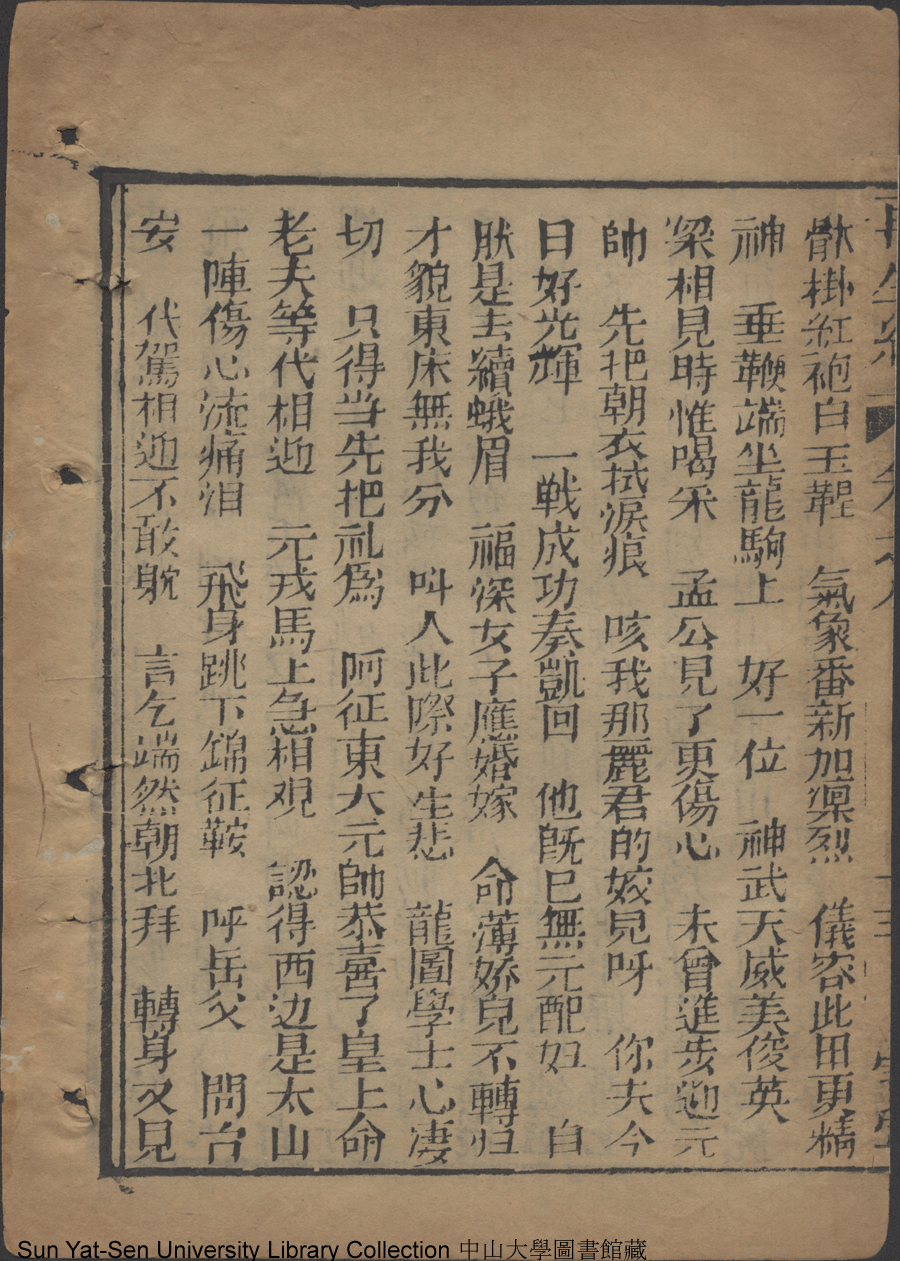 再生緣 卷之八 十三 寶寧
骮掛紅袍白玉鞓　氣象番新加凛烈　儀容此田更精
神　垂鞭端坐龍駒上　好一位　神武天威美俊英
梁相見時惟喝采　孟公見了更傷心　未曾進步迎元
帥　先把朝衣拭淚痕　咳我那麗君的姣見呀　你夫今
日好光輝　一戦成功奏凱回　他旣已無元配妇　自
肰是去續蛾眉　福深女子應婚嫁　命薄娇皃不轉归
才貌東床無我分　叫人此際好生悲　龍圖學士心凄
切　只得当先把礼為　阿征東大元帥恭喜了皇上命
老夫等代相迎　元戎馬上急相观　認得西边是太山
一陣傷心流痛泪　飛身跳下錦征鞍　呼岳父　問台
安　代駕相迎不敢躭　言乞端然朝北拜　轉身又見
Sun Yat-Sen University Library Collection 中山大學圖書館藏